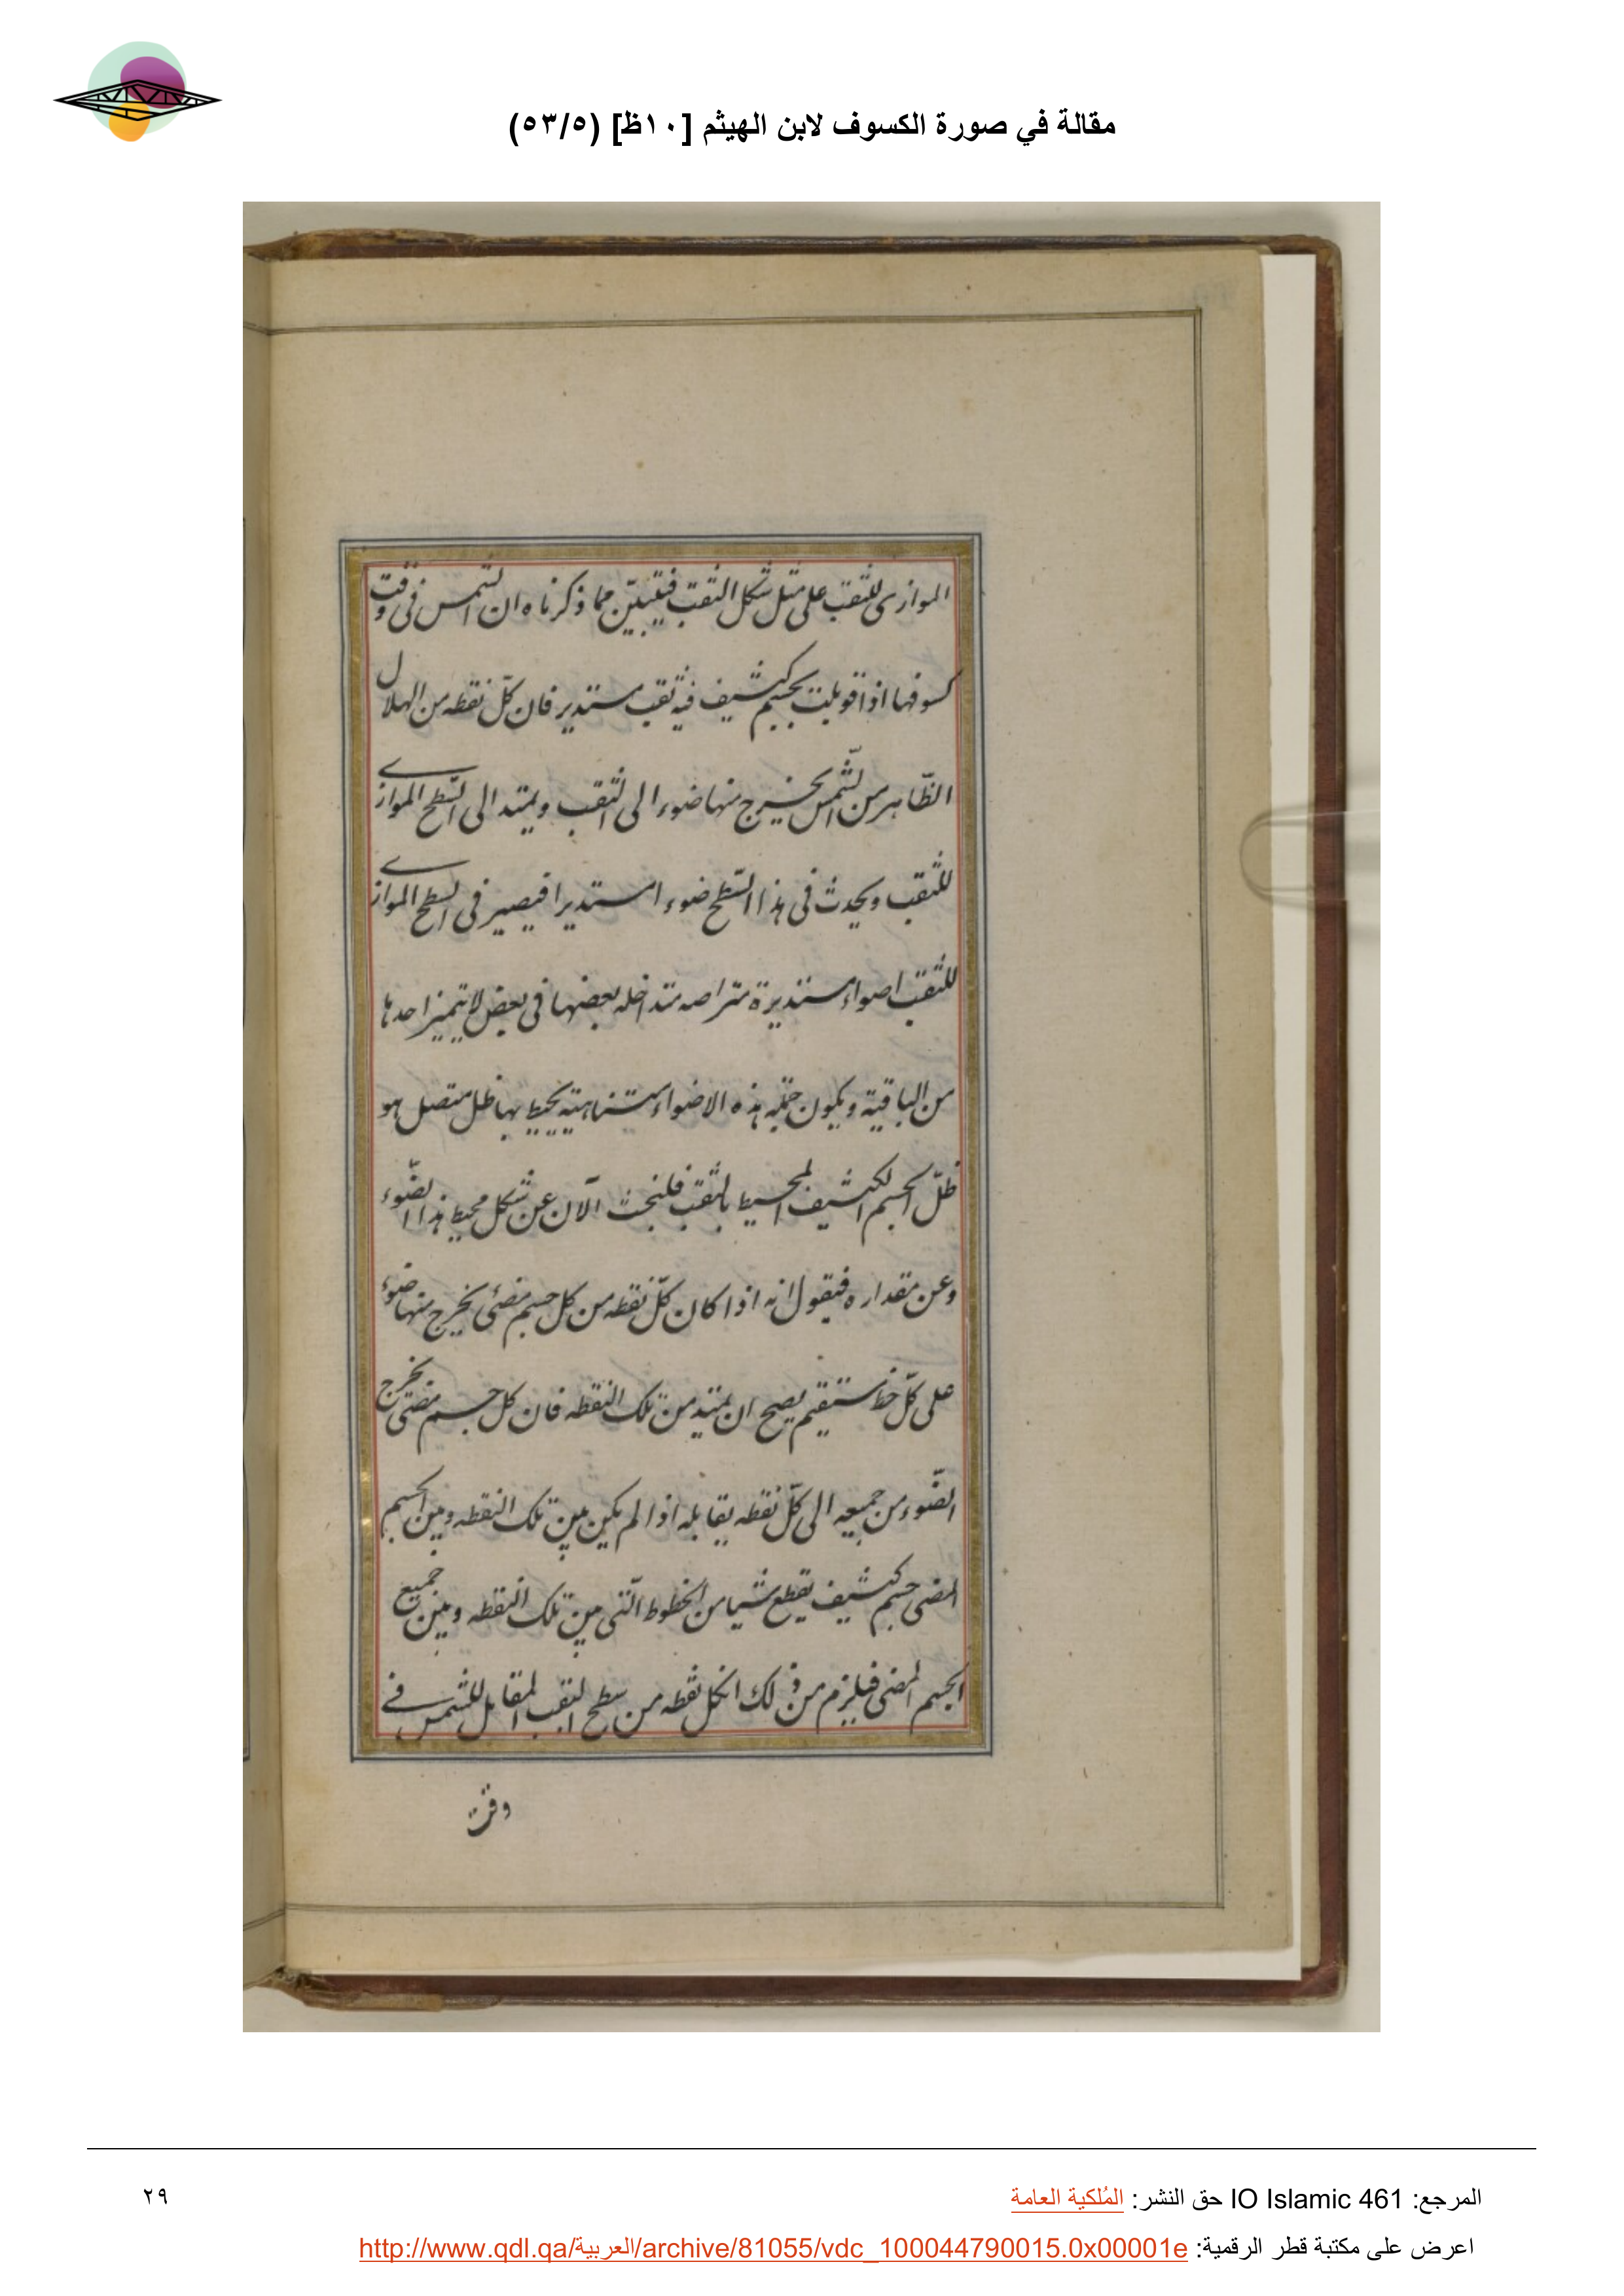 مقالة في صورة الكسوف لابن الهيثم [١٠ظ] (٥٣/٥)
الموازى للثقب على مثل شكل الثقب فيتبيّن مما ذكرناه ان الشمس فى وقت
كسوفها اذا قوبلت بجسم كثيف فيه ثقب مستدير فان كلّ نقطه من الهلال
الظّاهر من الشّمس يخرج منها ضوء الى الثقب ويمتد الى السّطح الموازے
للثقب ويحدث فى هذا السّطح ضوء ا مستديرا فيصير فى السطح الموازے
للثقب اضواء مستديرة متراصه متداخله بعضها فى بعض لا يتميز احدها
من الباقية ويكون جمله هذه الاضواء متناهية يحيط بها ظل متصل هو
ظلّ الجسم الكثيف المحيط بالثقب فلنبحث الآن عن شكل محيط هذا الضّوء
وعن مقداره فيقول انه اذا كان كلّ نقطه من كل جسم مضئ يخرج منها ضوء
على كلّ خط مستقيم يصح ان يمتد من تلك النقطه فان كل جسم مضئ يخرج
الضّوء من جميعه الى كلّ نقطه يقابله اذا لم يكن بين تلك النقطه وبين الجسم
المضى جسم كثيف يقطع شيا من الخطوط الّتى بين تلك النقطه وبين جميع
الجسم المضى فيلزم من ذلك انكل نقطه من سطح الثقب المقابل للشمس فے
وقت
المرجع: IO Islamic 461 حق النشر: المُلكية العامة
٢٩
اعرض على مكتبة قطر الرقمية: http://www.qdl.qa/العربية/archive/81055/vdc_100044790015.0x00001e